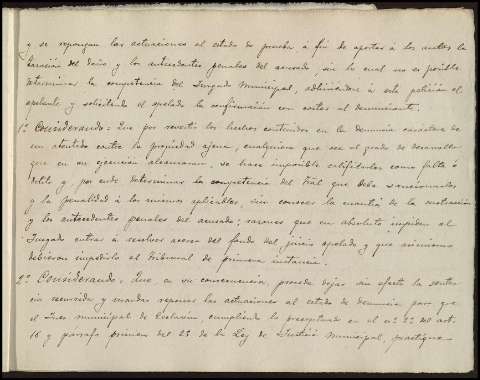 y se repongan las actuaciones al estado de prueba, á fin de aportar á los autos la
tasación del daño y los antecedentes penales del acusado, sin lo cual no es posible
determinar la competencia del Juzgado Municipal, adhiriéndose á esta petición el
apelante y solicitando el apelado la confirmación con costas al denunciante.
1º Considerando: Que por revestir los hechos contenidos en la denuncia carácter de
un atentado contra la propiedad ajena, cualquiera que sea el grado de desarrollo
que en su ejecución alcanzaran, se hace imposible calificarlos como falta ó
delito y, por ende determinar la competencia del Tral que deba sancionarlos
y la penalidad á los mismos aplicables, sin conocer la cuantía de la sustracción
y los antecedentes penales del acusado; razones que en absoluto impiden al
Juzgado entrar á resolver acerca del fondo del juicio apelado y que asimismo
debieron impedirlo al Tribunal de primera instancia.
2º Considerando: Que, en su consecuencia, procede dejar sin efecto la senten
cia recurrida y mandar reponer las actuaciones al estado de denuncia para que
el Juez municipal de, cumpliendo lo preceptuado en el nº 2º del art.
16 y párrafo primero del 23 de la Ley de Justicia Municipal, practique